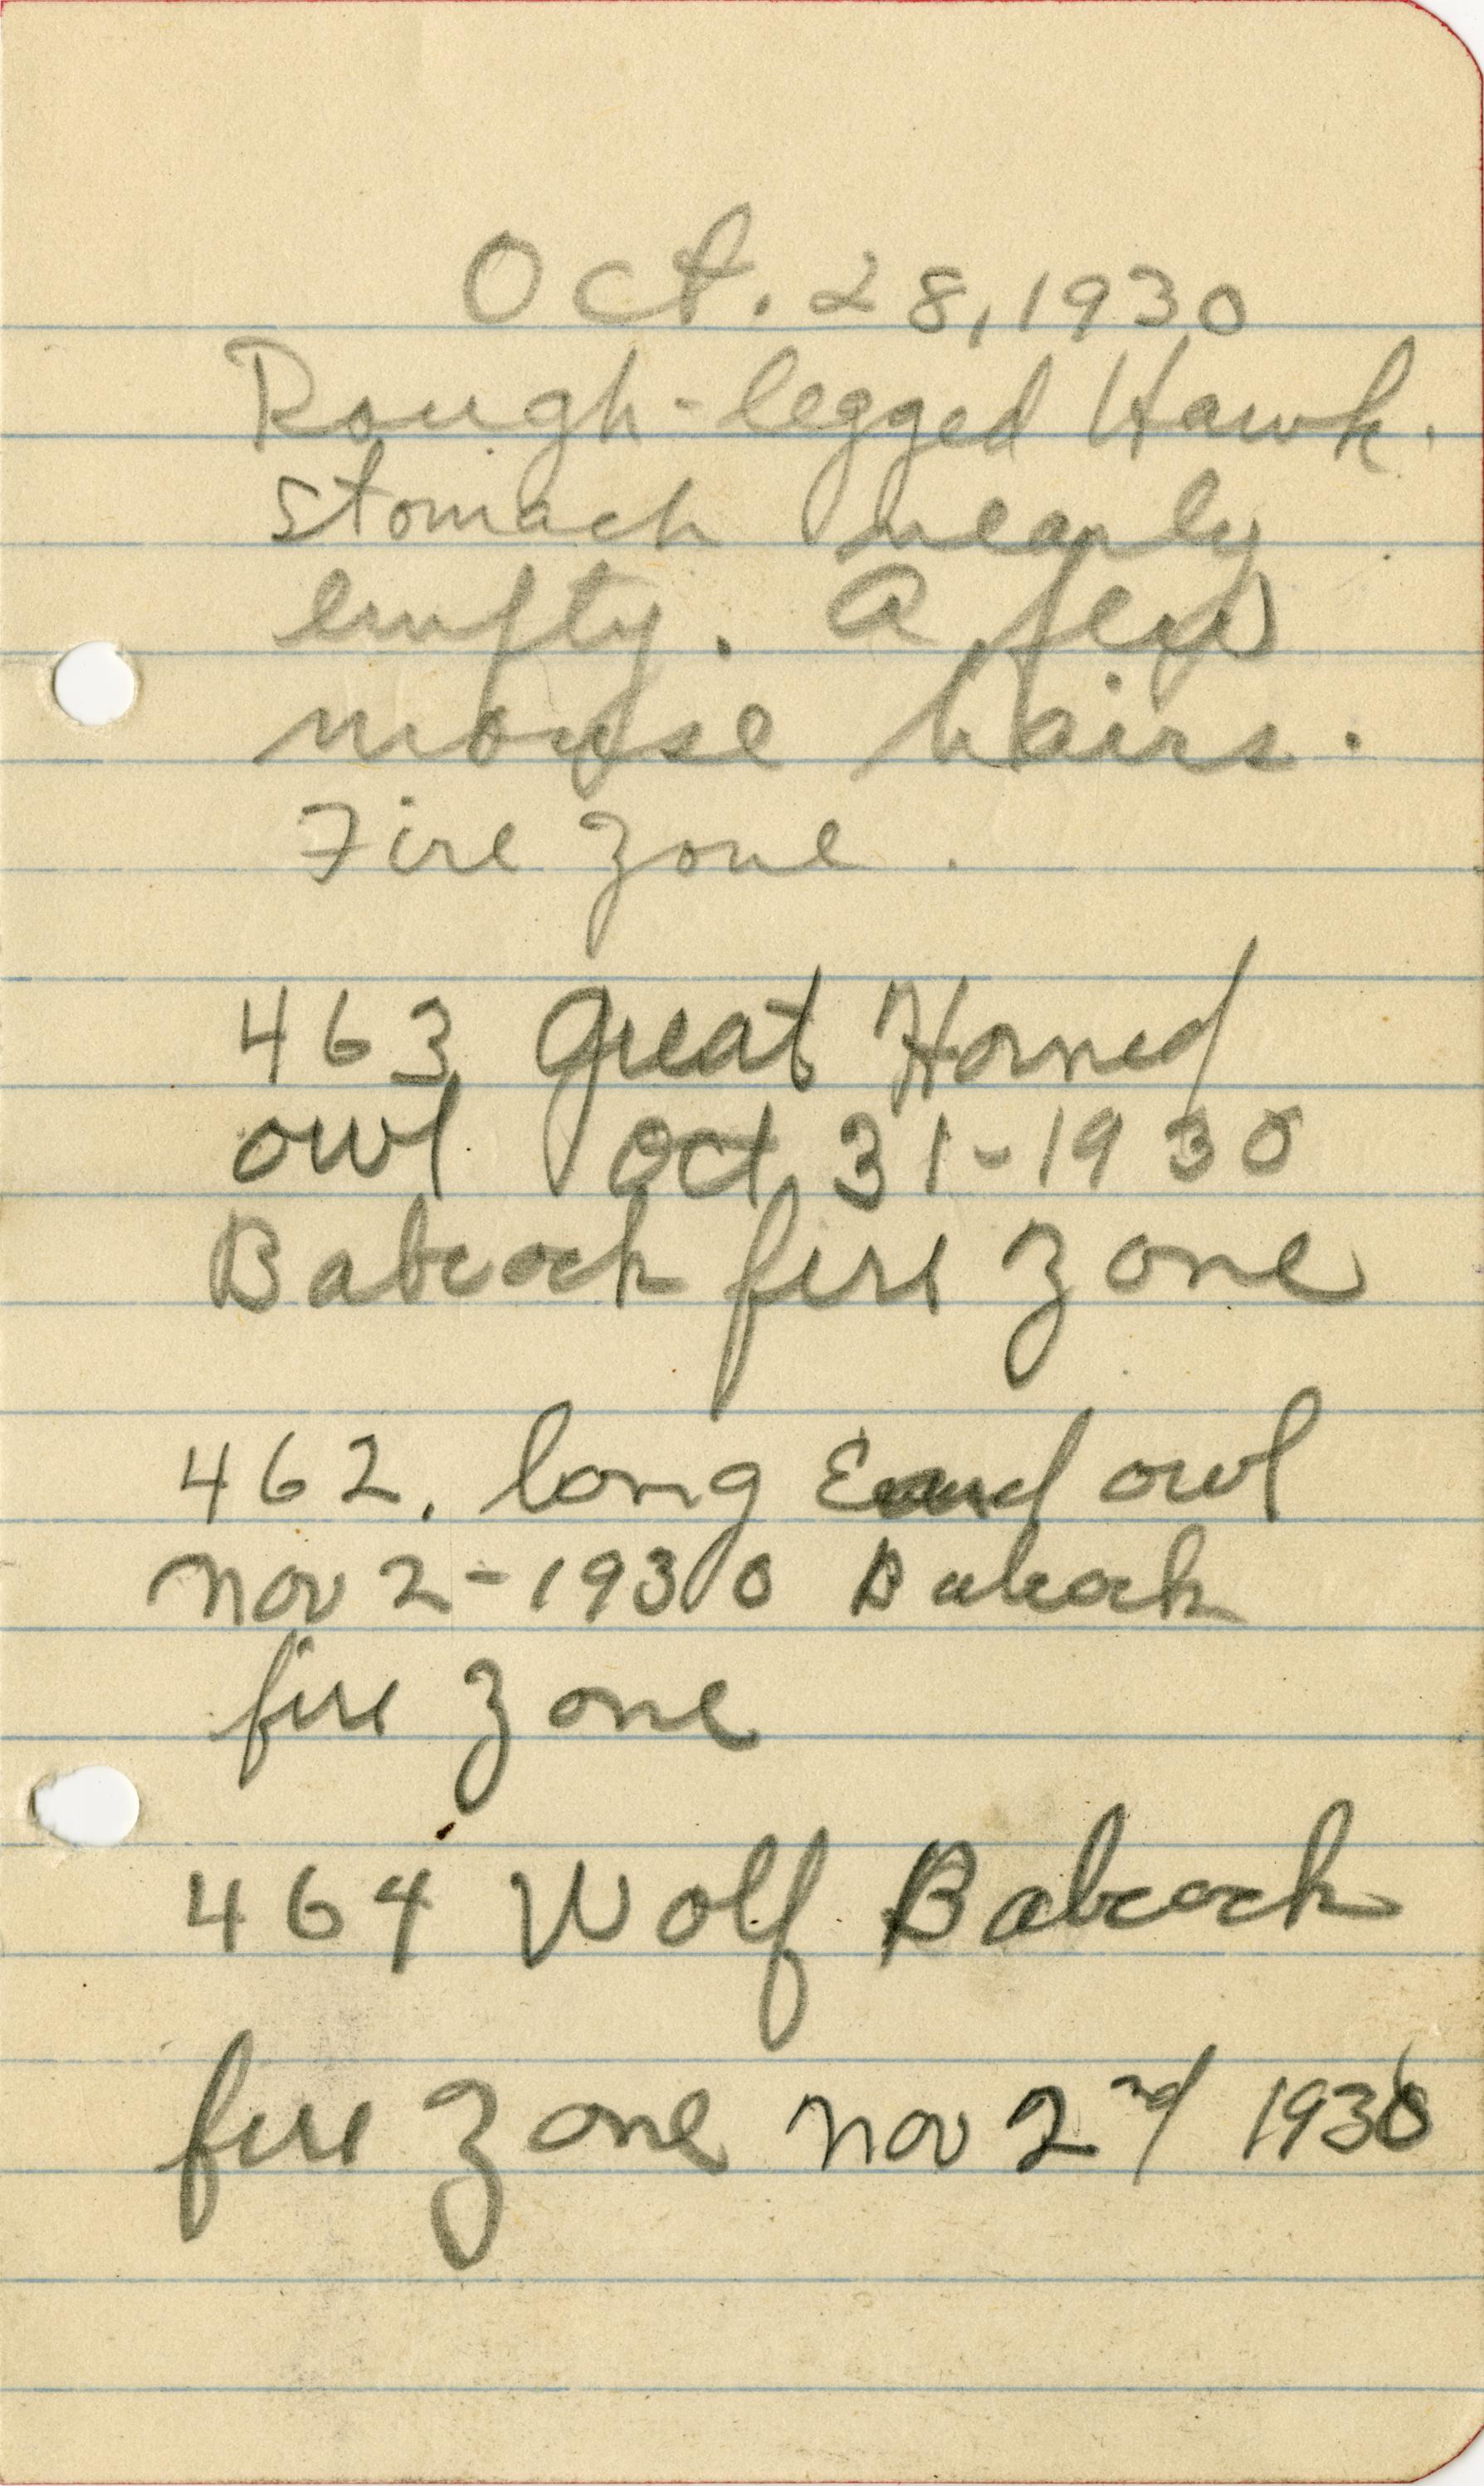 Oct. 28, 1930
Rough-legged Hawk.
Stomach nearly
empty. A few
mouse hairs.
Fire zone.
463 Great Horned
owl Oct 31-1930
Babcock fire zone
462. long Eared owl
Nov 2-1930 Babcock
fire zone
464 Wolf Babcock
fire zone Nov 2nd 1930